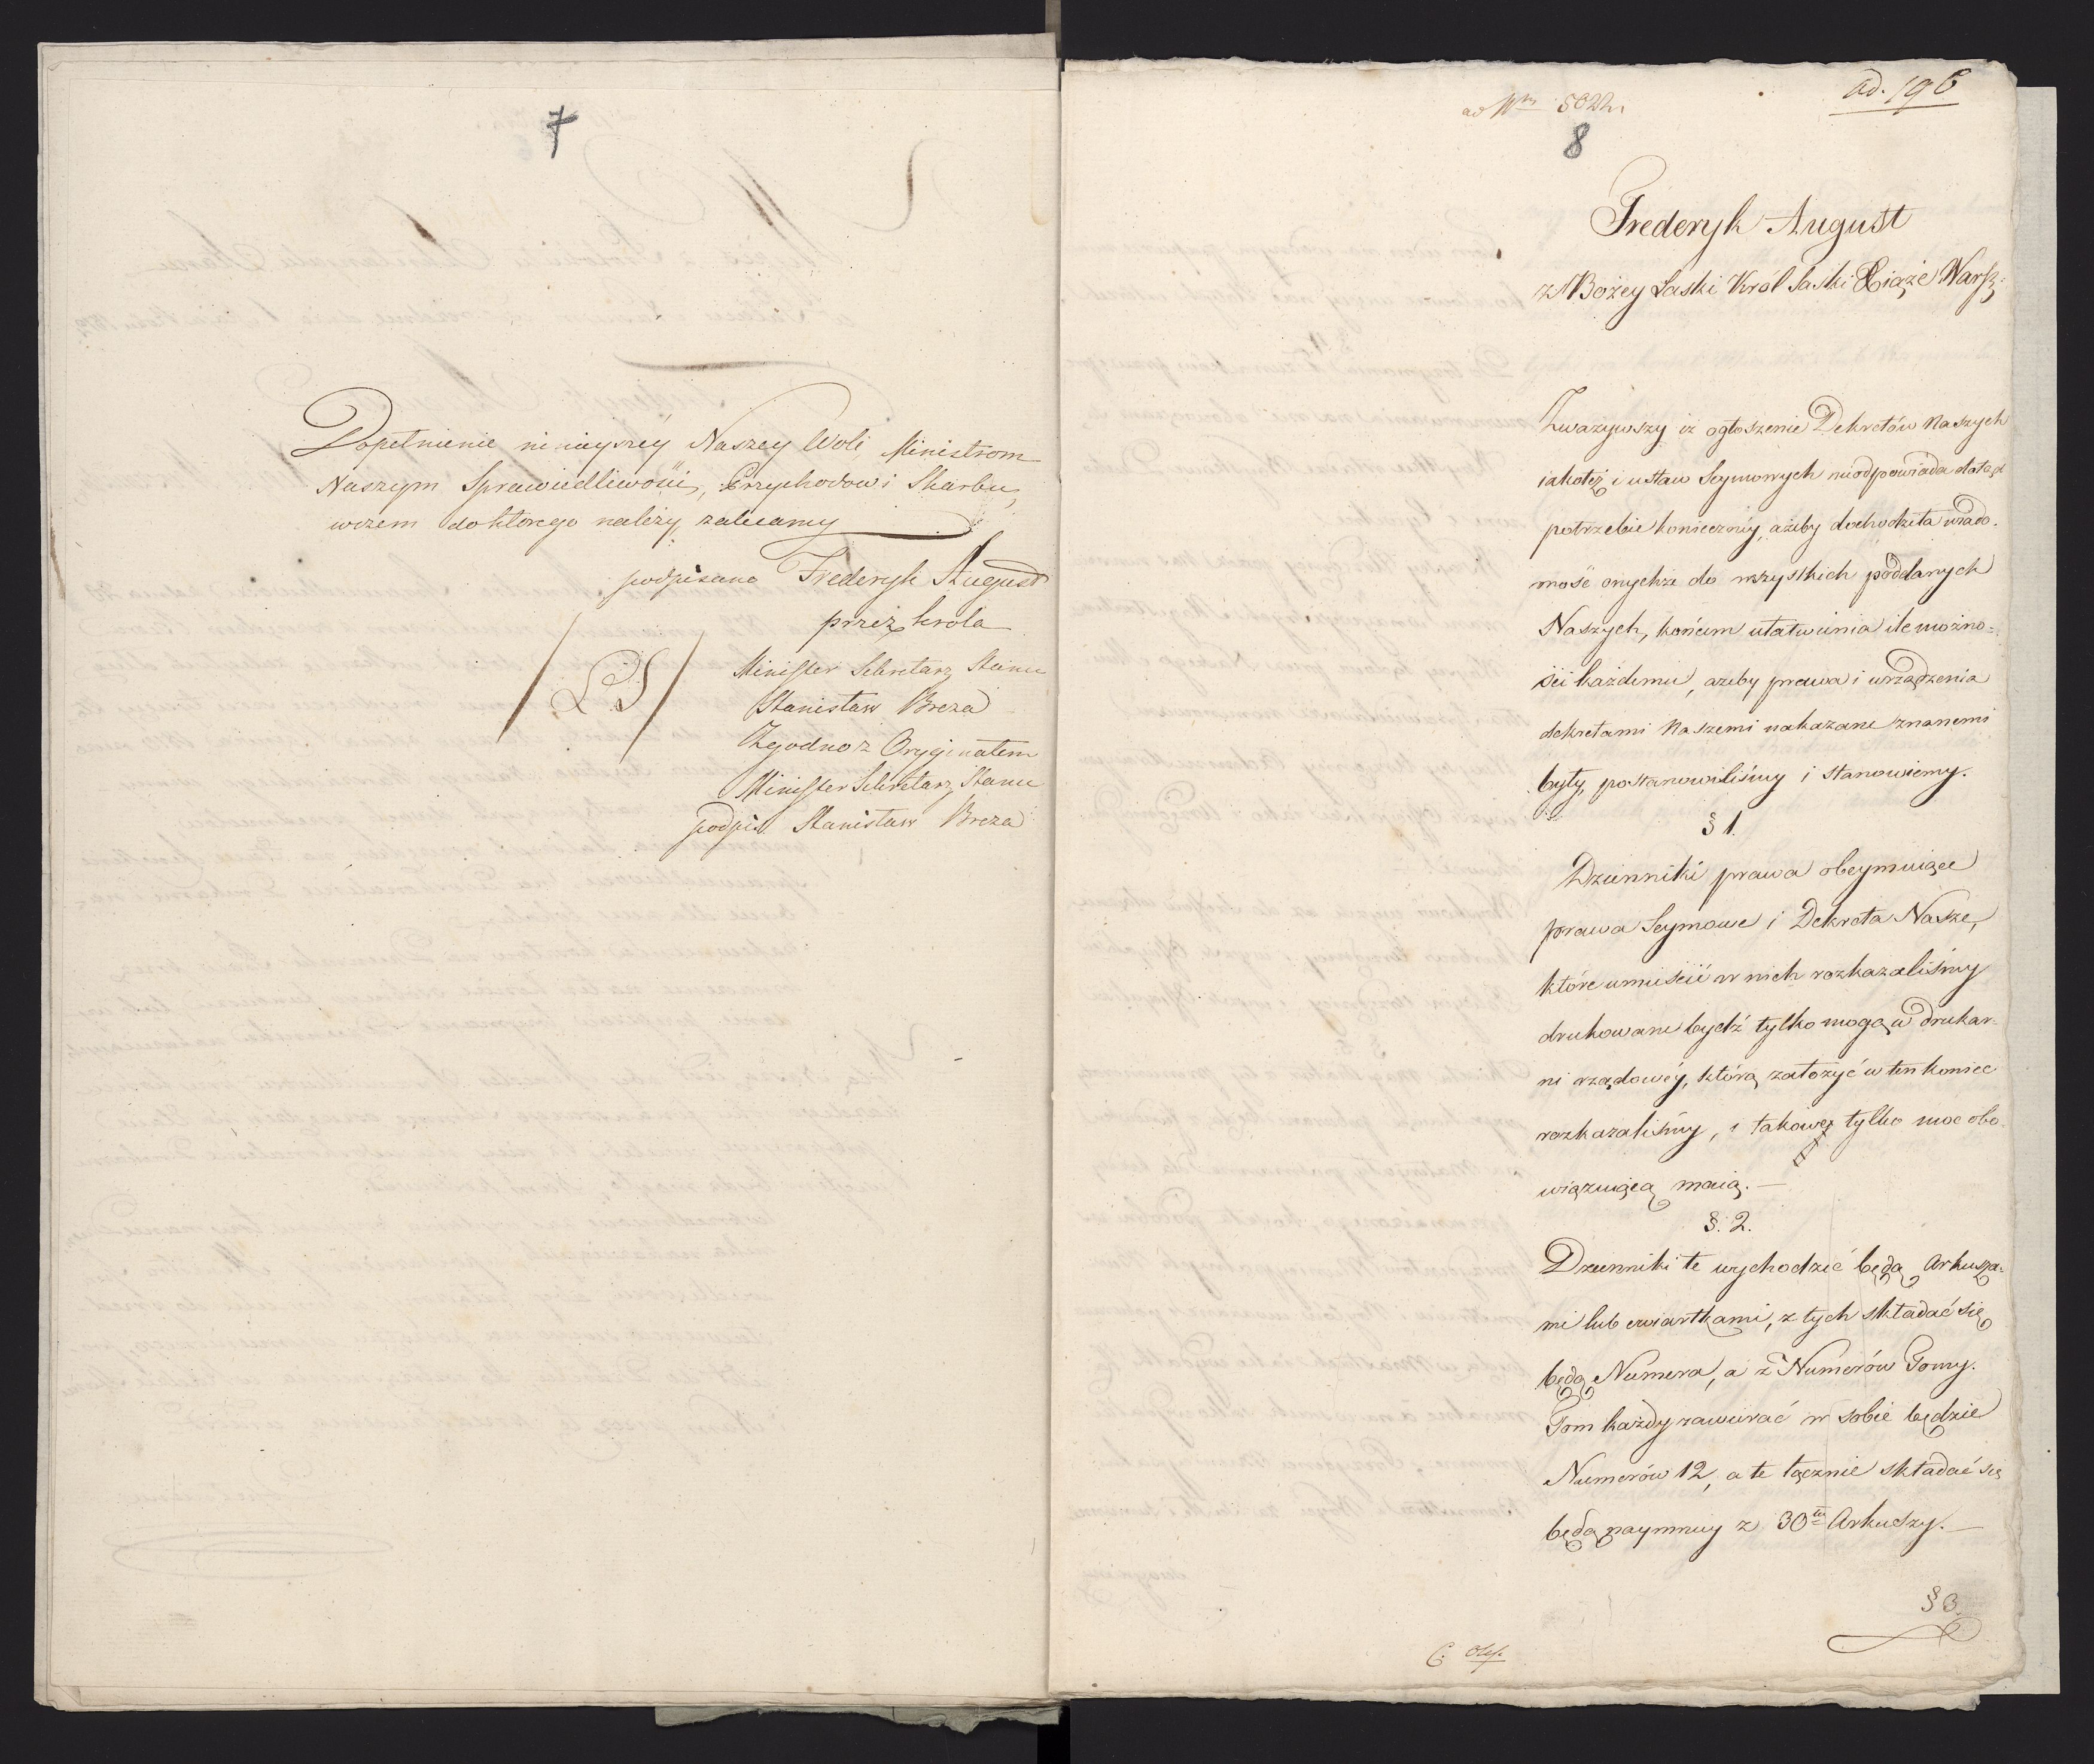 7
Dopełnienie ninieyszéy Naszey Woli Ministrom
Naszym Sprawiedliwości, Przychodow i Skarbu,
wczem doktorego należy, zalecamy
podpisano Frederyk August
przez krola
/LS/
Minister Sekretarz Stanu
Stanisław Breza
Zgodno z Oryginałem
Minister Sekretarz Stanu
podpis. Stanisław Breza
ad. 196
ad Nrm
8
Frederyk August
z Bożey Łaski Król Saski Xiąże Warsz:
Zważywszy iż ogłoszenie Dekretów Naszych
iakotéż i ustaw Seymowych nieodpowiada dotąd
potrzebie konieczney, ażeby dochodziła wiado-
mość onychże do wszystkich poddanych
Naszych, końcem ułatwienia ile możno-
ści każdemu, ażeby prawa i urządzenia
dekretami Naszemi nakazane znanemi
były, postanowiliśmy i stanowiemy.
§ 1.
Dzienniki prawa obeymuiące
prawa Seymowe i Dekreta Nasze,
które umieścić w nich rozkazaliśmy
drukowane bydź tylko mogą w drukar-
ni rządowéy, którą założyć w ten koniec
rozkazaliśmy, i takowe tylko moc obo-
wiązuiącą maią. —
§. 2.
Dzienniki te wychodzić będą Arkusza-
mi lub cwiartkami, z tych składać się
będą Numera, a z Numerów Tomy.
Tom każdy zawierać w sobie będzie
Numerów 12, a te łącznie składać się
będą naymniey z 30tu Arkuszy. —
§ 3.